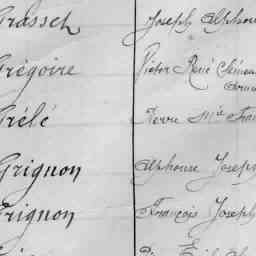 Grasset Joseph Alphon
Grégoire Victor René Clémen
Grélé Pierre Mie Fran
Grignon Alphonse Joseph
Grignon François Joseph